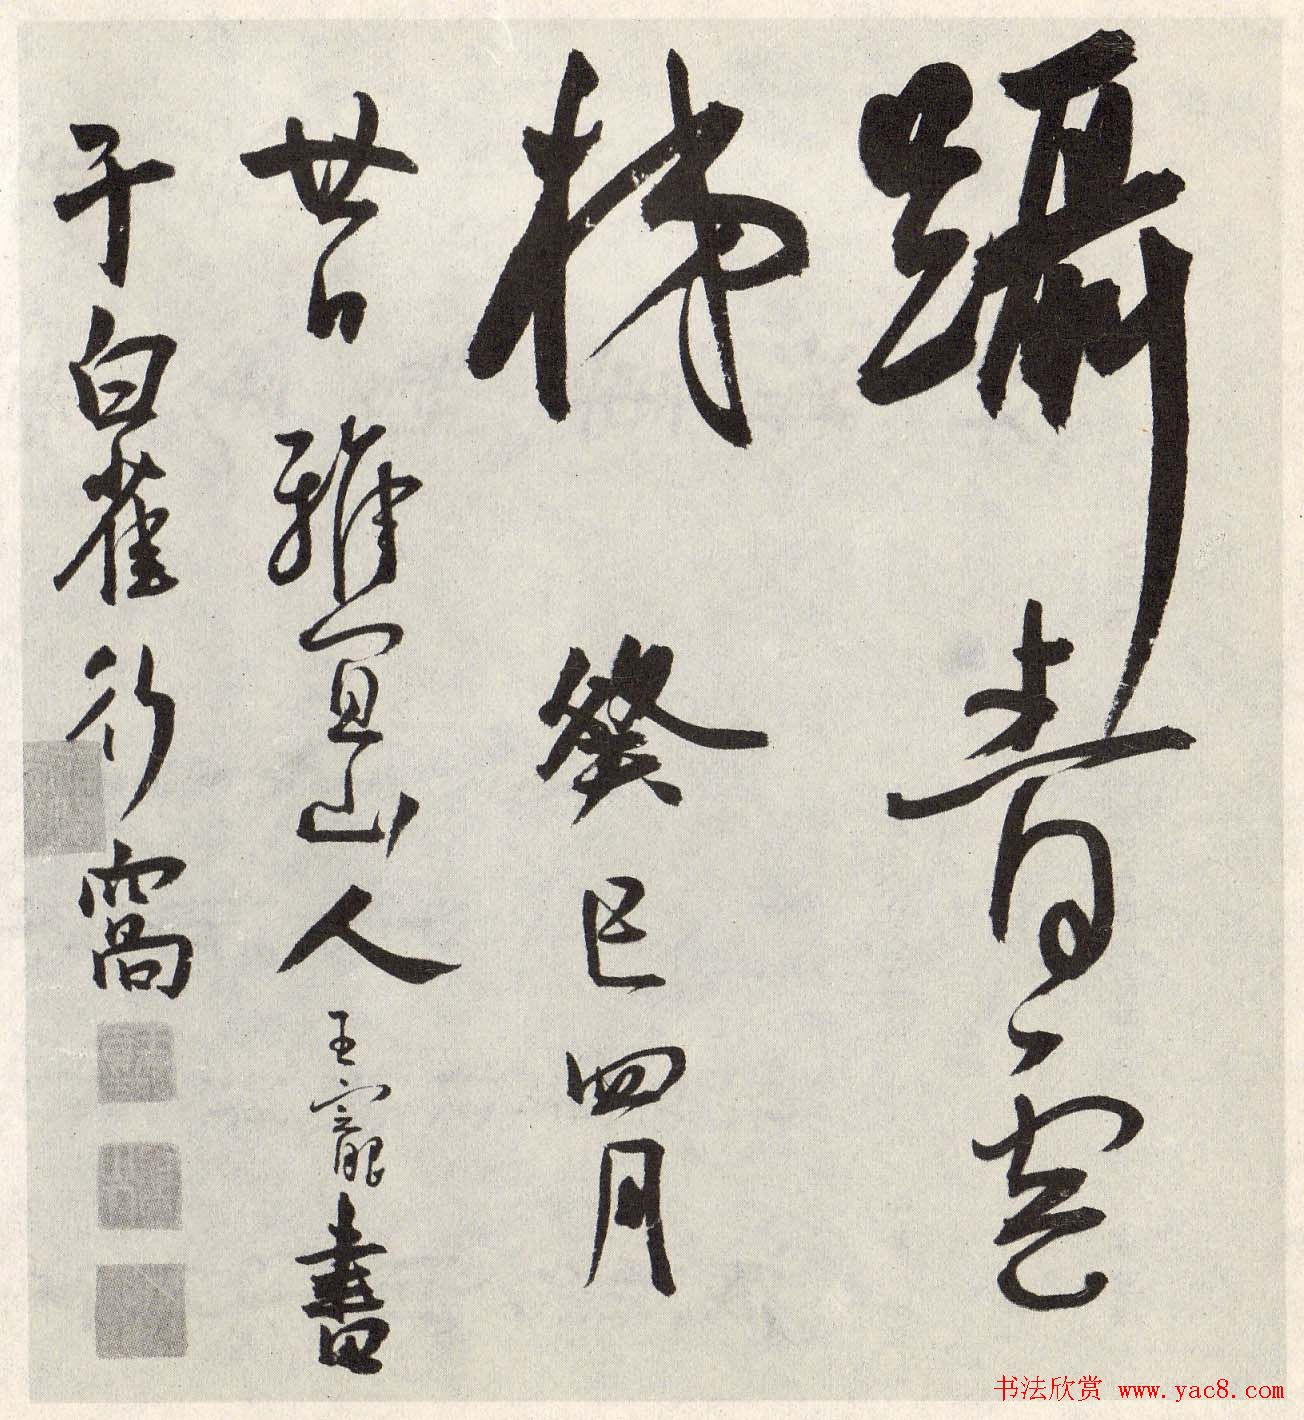 躡青雲
梯 癸巳四月
廿日 雅宜山人王寵書
于白雀行窩
书法欣赏 www.yac8.com